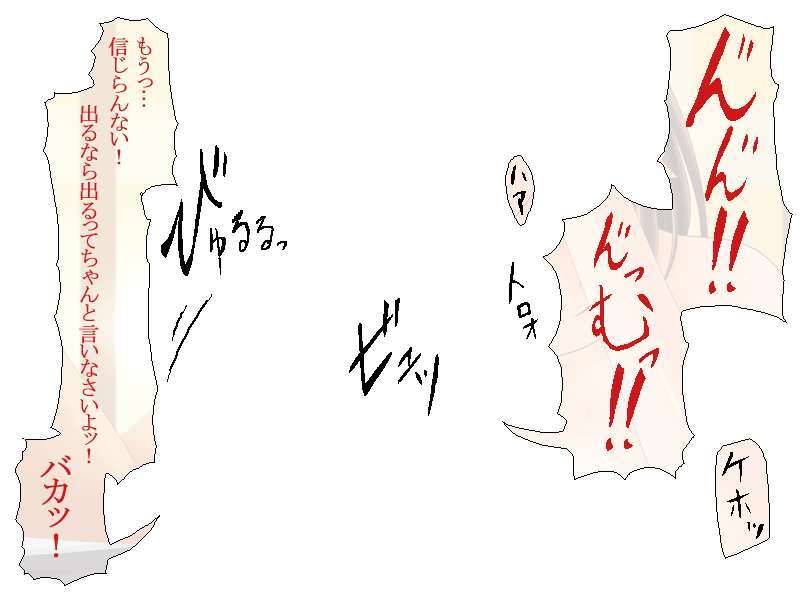 ん゛ん゛!!
ん゛っむ゛っ!!
ハァ
トロォ
ケホッ
ビュッ
びゅるるっ
もうっ…
信じらんない!
出るなら出るってちゃんと言いなさいよッ!
バカッ!